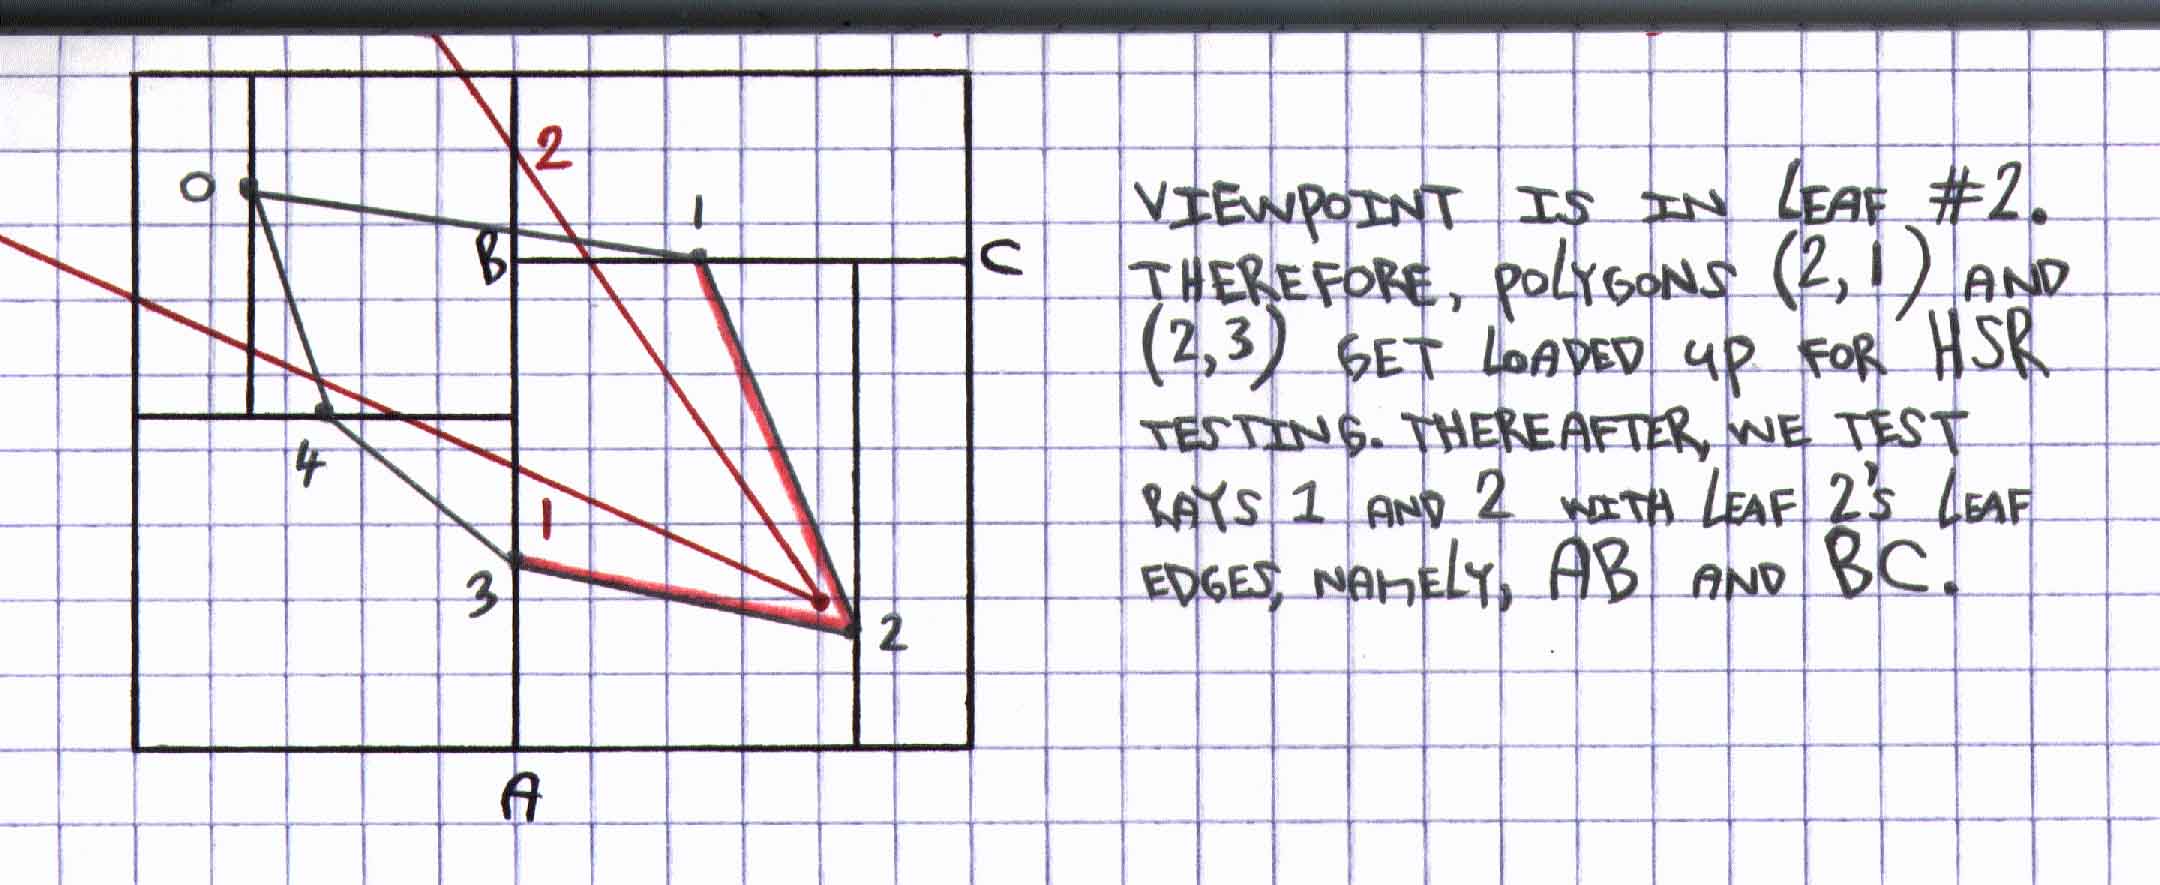 2
0
1
B
C
4
1
3
2
A
VIEWPOINT IS IN LEAF #2.
THEREFORE, POLYGONS (2,1) AND
(2,3) GET LOADED UP FOR HSR
TESTING. THEREAFTER, WE TEST
RAYS 1 AND 2 WITH LEAF 2'S LEAF
EDGES, NAMELY, AB AND BC.